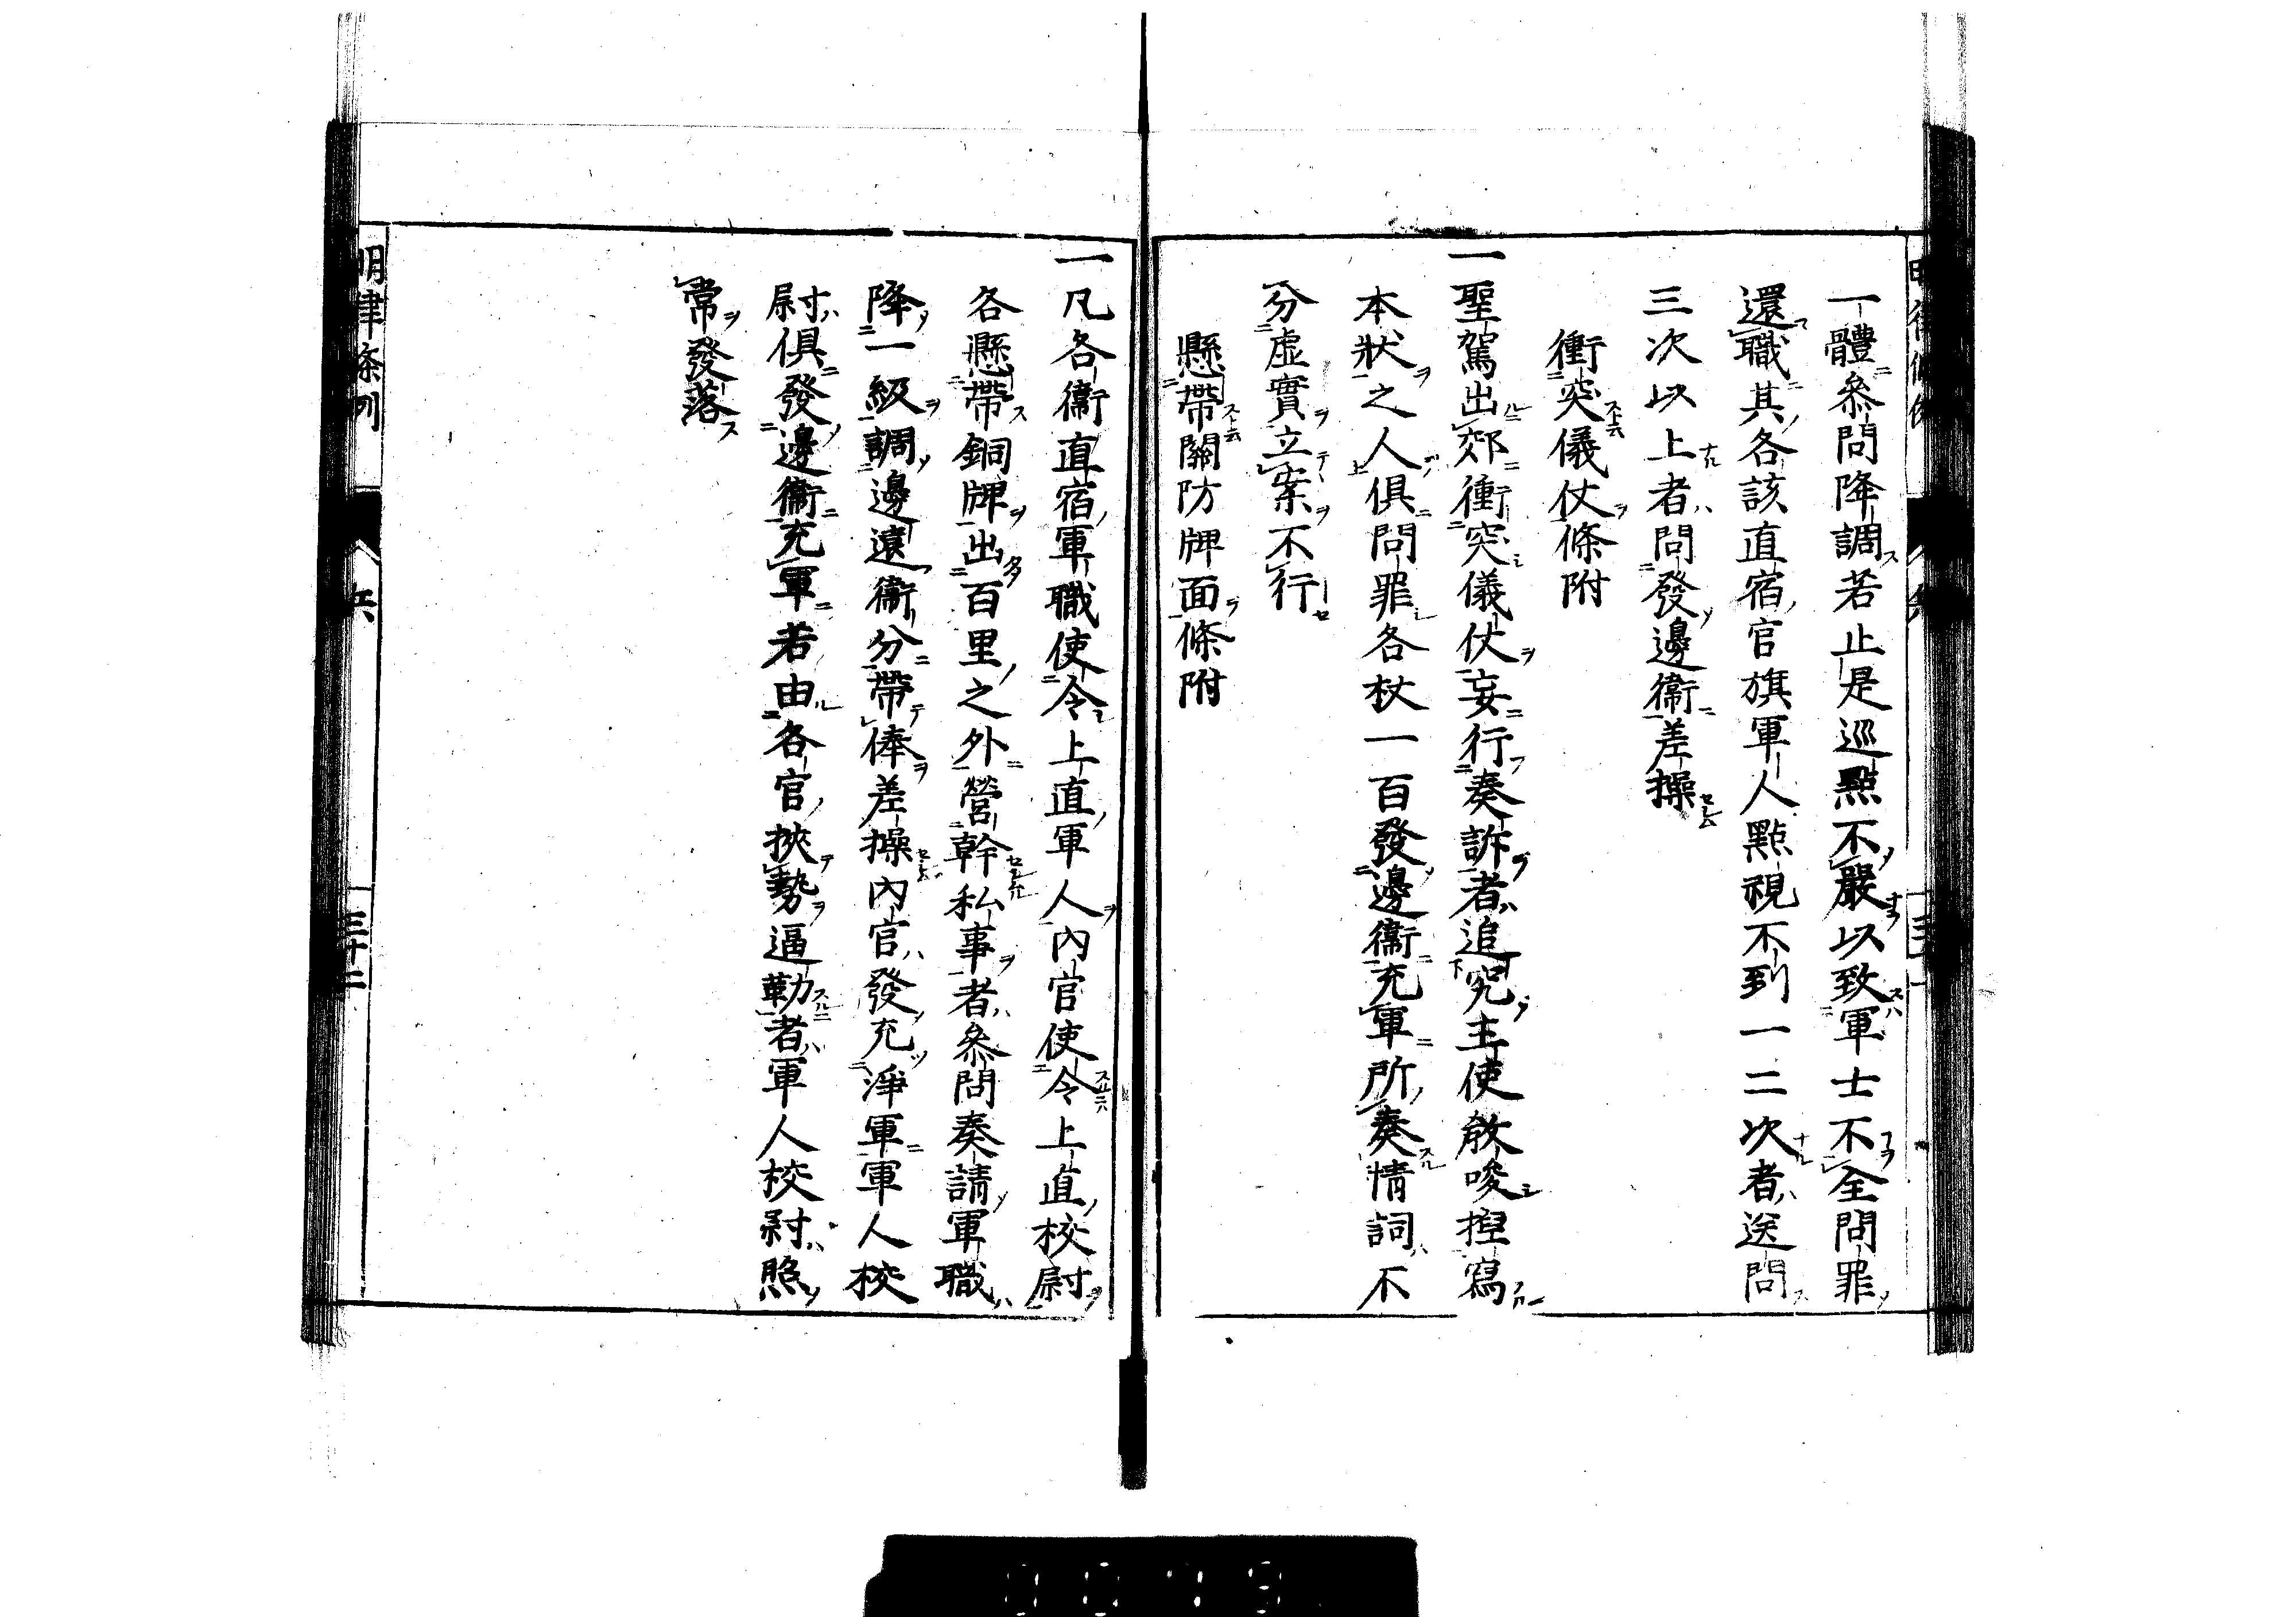 一體叅問降調若止是巡㸃不嚴以致軍士不全問罪
還職其各該直宿官旗軍人㸃視不到一二次者送問
三次以上者問發邊衞差操
衝突儀仗條附
一聖駕出郊衝突儀仗妄行奏訴者追究主使教唆揑寫
本狀之人俱問罪各杖一百發邊衞充軍所奏情詞不
分虛實立案不行
懸帶關防牌面條附
一凡各衞直宿軍職使令上直軍人內官使令上直校尉
各懸帶銅牌出百里之外營幹私事者叅問奏請軍職
降一級調邊遠衞分帶俸差操內官發充淨軍軍人校
尉俱發邊衞充軍若由各官挾勢逼勒者軍人校尉照
常發落
明律條例
兵
三十二